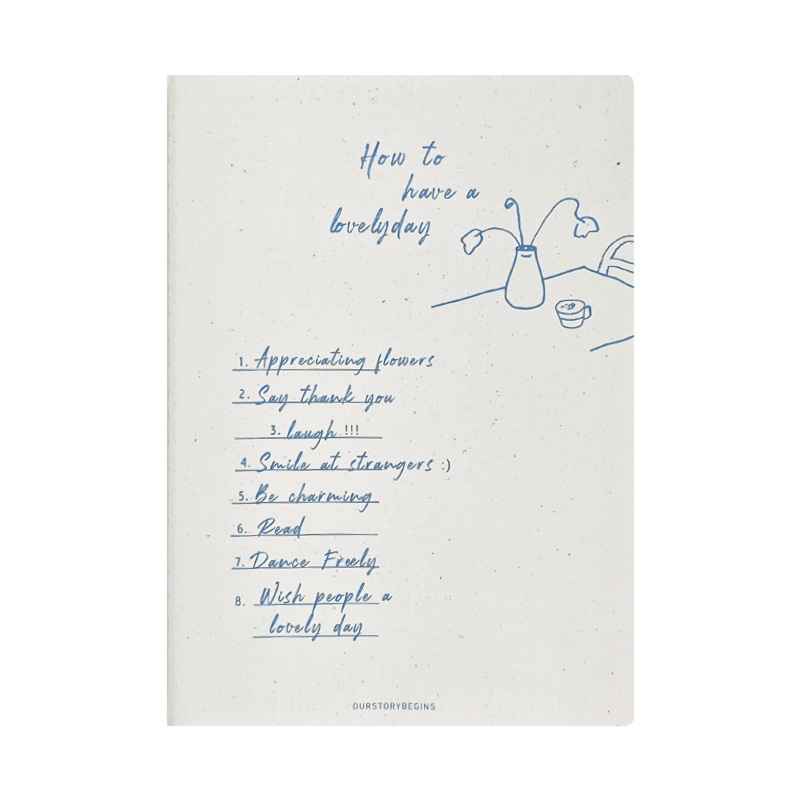 How to
have a
lovelyday
1. Appreciating flowers
2. Say thank you
3. laugh !!!
4. Smile at strangers :)
5. Be charming
6. Read
7. Dance Freely
8. Wish people a
lovely day
OURSTORYBEGINS